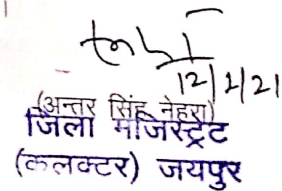 12/2/21
(अन्तर सिंह नेहरा)
जिला मजिस्ट्रेट
(कलक्टर) जयपुर